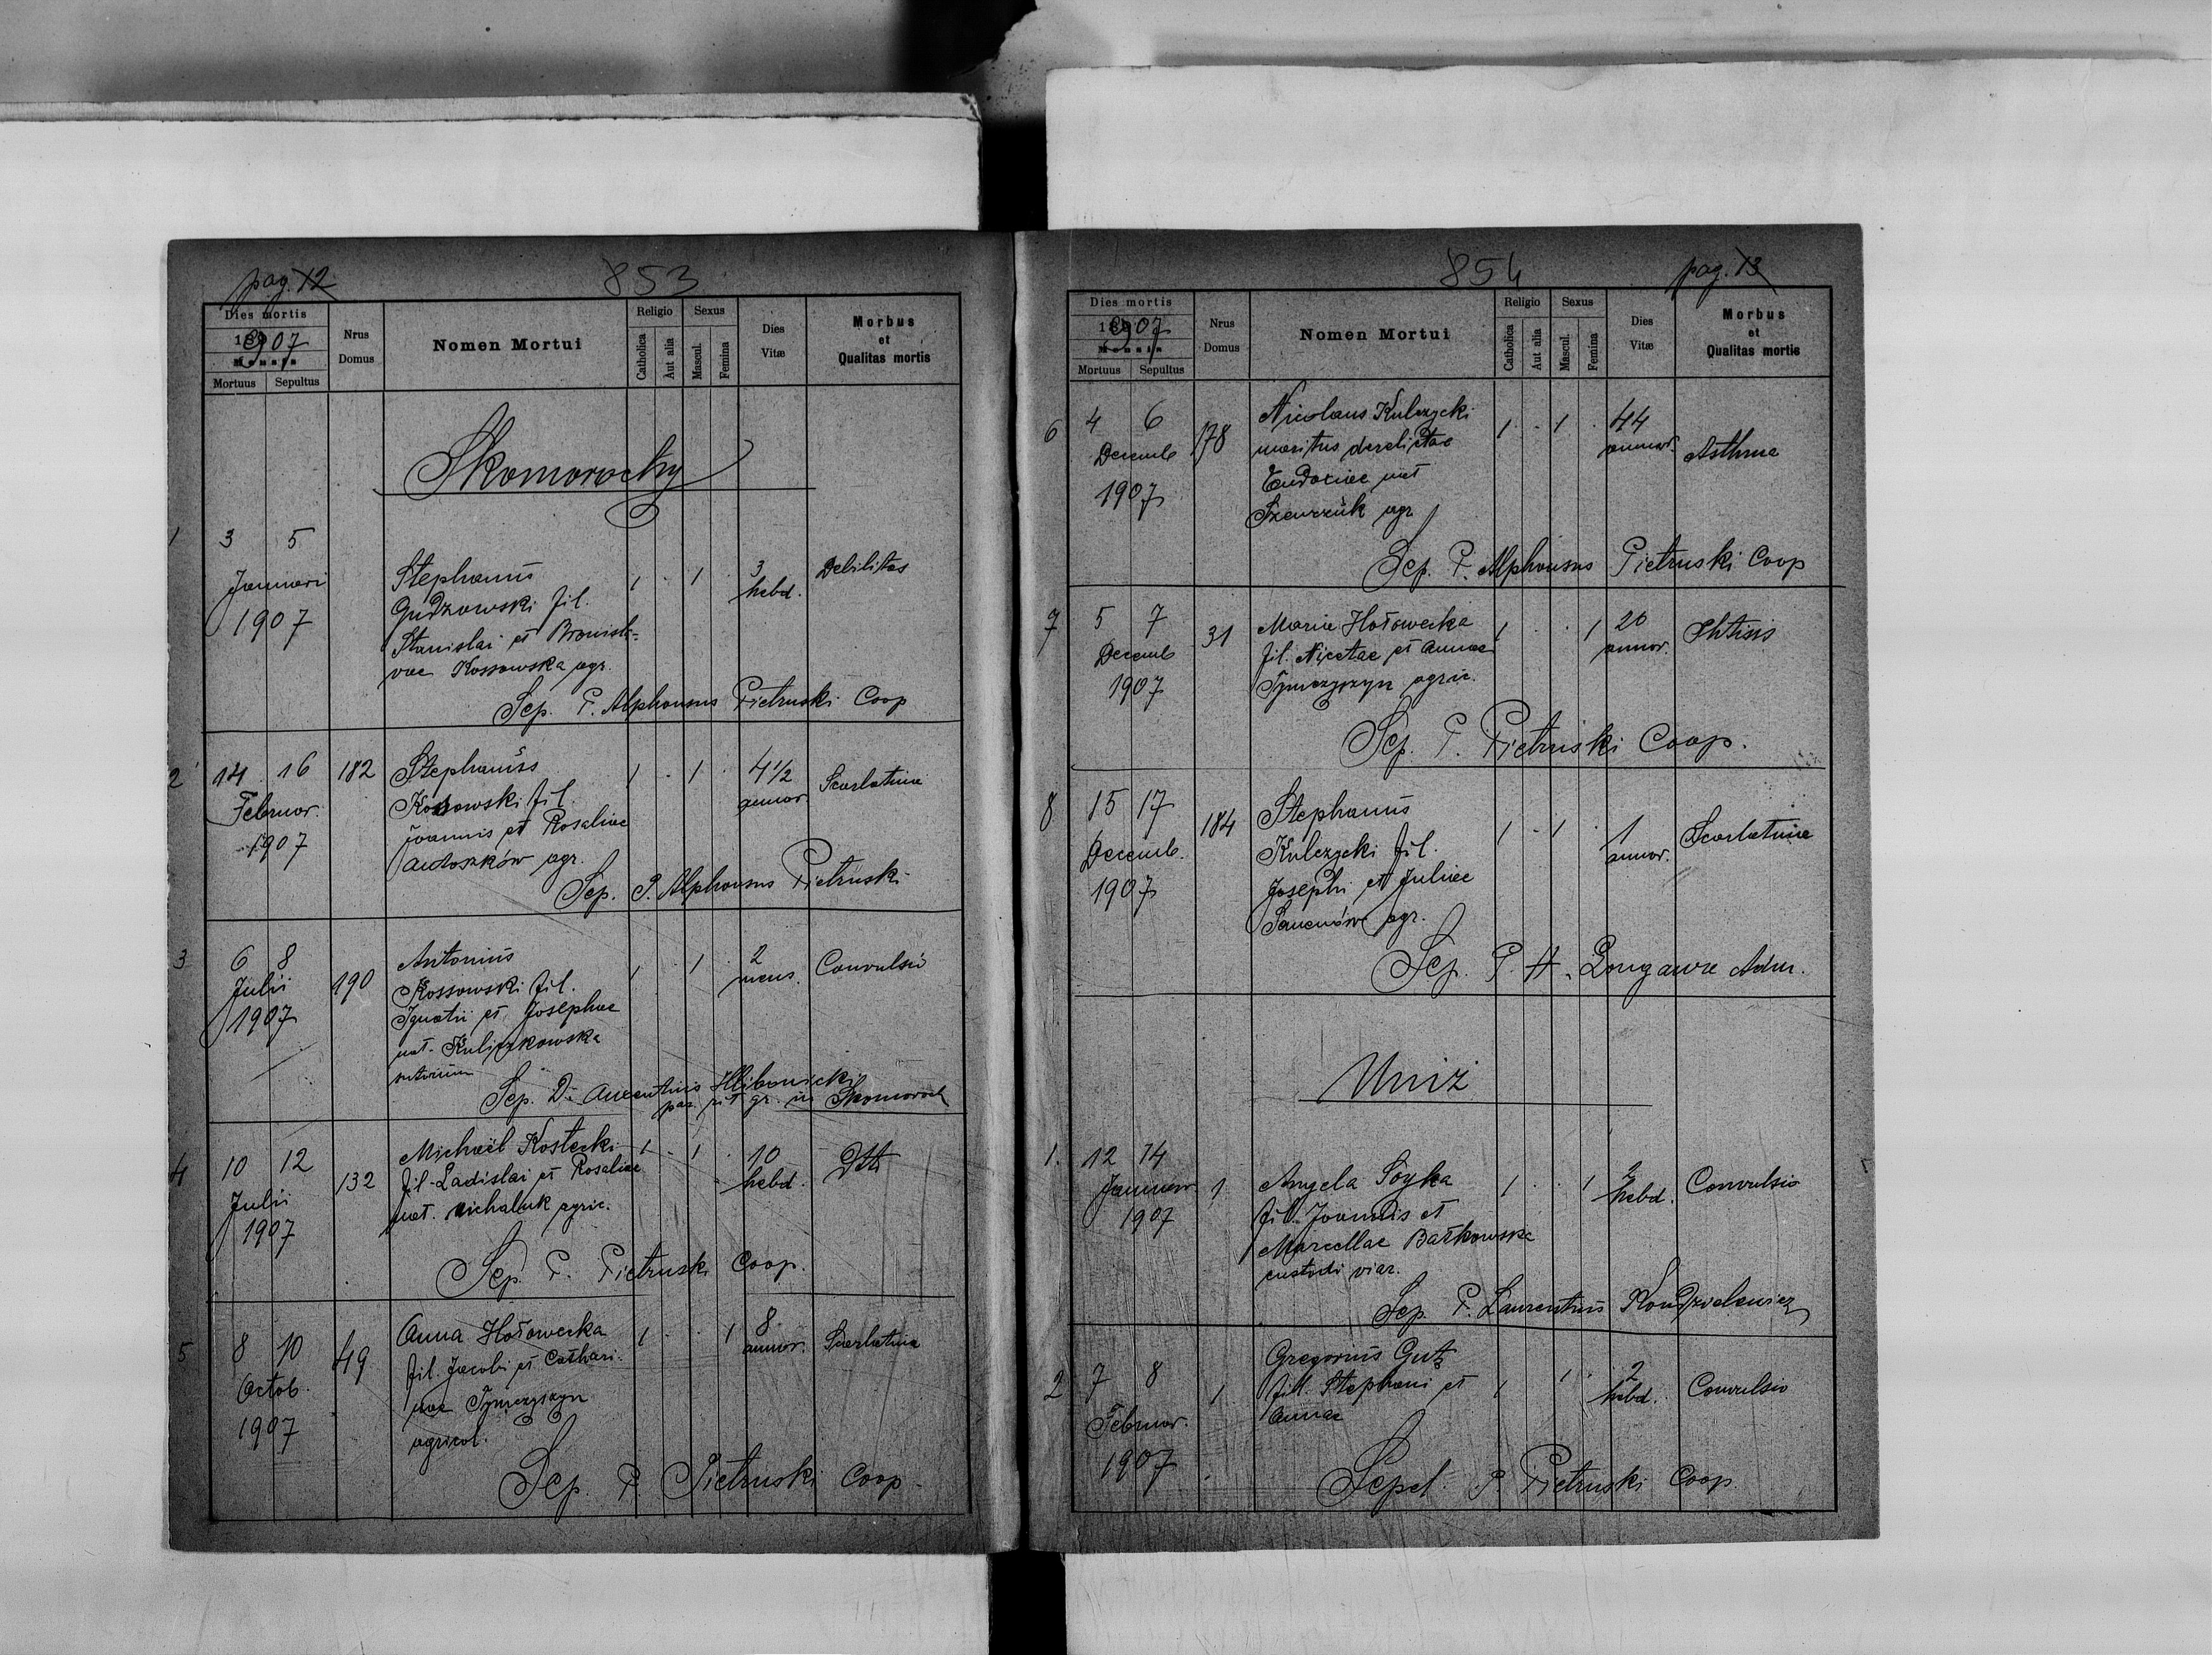 pag. 12
853
Dies mortis
1907
Mensis
Mortuus
Sepultus
Nrus
Domus
Nomen Mortui
Religio
Catholica
Aut alia
Sexus
Mascul.
Femina
Dies
Vitæ
Morbus
et
Qualitas mortis
Skomorochy
1
3 5
Januari
1907
Stephanus
Gudzowski fil.
Stanislai et Bronisla-
vae Kossowska agr.
1 . 1 .
3
hebd.
Debilitas
Sep. P. Alphonsus Pietruski Coop
2
14 16
Februar.
1907
182
Stephanus
Kossowski fil.
Joannis et Rosaliae
Antoszków agr.
1 . 1 .
4 1/2
annor.
Scarlatina
Sep. P. Alphonsus Pietruski
3
6 8
Julii
1907
190
Antonius
Kossowski fil.
Ignatii et Josephae
nat. Kuliczkowska
1 . 1 .
2
mens.
Convulsio
Sep. D. Auxentius Hlibowicki
par. rit gr. in Skomoroch
4
10 12
Julii
1907
132
Michaël Kostecki
fil. Ladislai et Rosaliae
nat. Michaluk agric.
1 . 1 .
10
hebd.
Sep. P. Pietruski Coop.
5
8 10
Octob.
1907
49
Anna Hołowecka
fil. Jacobi et Cathari-
nae Tymczyszyn
agricol.
1 . . 1
8
annor.
Scarlatina
Sep. P. Pietruski Coop.
854
pag. 13
Dies mortis
1907
Mensis
Mortuus
Sepultus
Nrus
Domus
Nomen Mortui
Religio
Catholica
Aut alia
Sexus
Mascul.
Femina
Dies
Vitæ
Morbus
et
Qualitas mortis
6
4 6
Decemb
1907
178
Nicolaus Kulczycki
maritus derelictae
Eudociae nat
agr
1 . 1 .
44
annor.
Asthma
Sep. P. Alphonsus Pietruski Coop
7
5 7
Decemb
1907
31
Maria Hołowecka
fil. Nicetae et Annae
Tymczyszyn agric.
1 . . 1
20
annor.
Phtisis
Sep. P. Pietruski Coop.
8
15 17
Decemb.
1907
184
Stephanus
Kulczycki fil.
Josephi et Juliae
agr.
1 . 1 .
1
annor.
Scarlatina
Sep. P. A. Adm.
Uniż
1.
12 14
Januar
1907
1
Angela Soyka
fil. Joannis et
Marcellae Bałkowska
custodi viar.
1 . . 1
2
hebd.
Convulsio
Sep. P. Laurentius Kondzielewicz
2
7 8
Februar.
1907
1
Gregorius Gutz
fil. Stephani et
Annae
1 1 .
2
hebd.
Convulsio
Sepel. P Pietruski Coop.